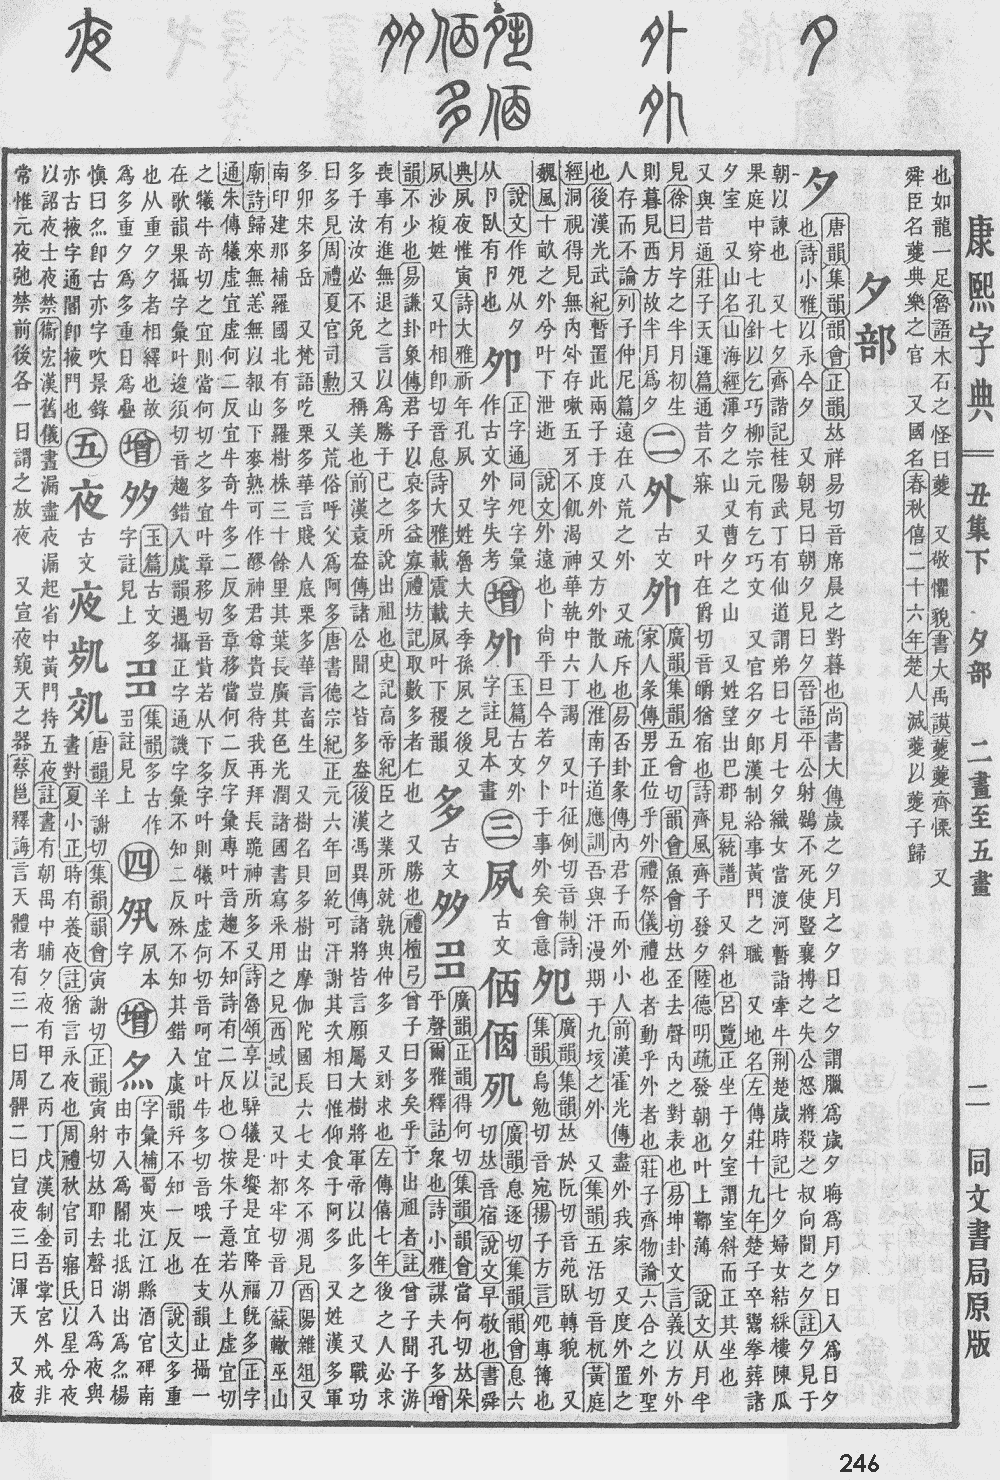 康熙字典 丑集下 夕部 二畫至五畫 二 同文書局原版
也如龍一足魯語木石之怪曰夔 又敬懼貌書大禹謨夔夔齊慄 又
舜臣名夔典樂之官 又國名春秋僖二十六年楚人滅夔以夔子歸
夕部
夕 唐韻集韻韻會正韻𠀤祥易切音席晨之對暮也尚書大傳歲之夕月之夕日之夕謂臘爲歲夕晦爲月夕日入爲日夕
也詩小雅以永今夕 又朝見曰朝夕見曰夕晉語平公射鴳不死使豎襄搏之失公怒將殺之叔向聞之夕註夕見于
朝以諫也 又七夕齊諧記桂陽武丁有仙道謂弟曰七月七夕織女當渡河暫詣牽牛荆楚歲時記七夕婦女結綵樓陳瓜
果庭中穿七孔針以乞巧柳宗元有乞巧文 又官名夕郞漢制給事黃門之職 又地名左傳莊十九年楚子卒鬻拳葬諸
夕室 又山名山海經渾夕之山又曹夕之山 又姓望出巴郡見統譜 又斜也呂覽正坐于夕室謂室斜而正其坐也
又與昔通莊子天運篇通昔不寐 又叶在爵切音皭猶宿也詩齊風齊子發夕陸德明疏發朝也叶上鞹薄 說文从月半
見徐曰月字之半月初生則暮見西方故半月爲夕 二 外 古文 外 廣韻集韻五會切韻會魚會切𠀤歪去聲內之對表也易坤卦文言義以方外
家人彖傳男正位乎外禮祭儀禮也者動乎外者也莊子齊物論六合之外聖
人存而不論列子仲尼篇遠在八荒之外 又疏斥也易否卦彖傳內君子而外小人前漢霍光傳盡外我家 又度外置之
也後漢光武紀暫置此兩子于度外 又方外散人也淮南子道應訓吾與汗漫期于九垓之外 又集韻五活切音杌黃庭
經洞視得見無內外存嗽五牙不飢渴神華執中六丁謁 又叶征例切音制詩
魏風十畝之外兮叶下泄逝 說文外遠也卜尚平旦今若夕卜于事外矣會意 夗 廣韻集韻𠀤於阮切音苑臥轉貌 又
集韻烏勉切音宛揚子方言夗專簿也
說文作夗从夕从卪臥有卪也 夘 正字通同夗字彙作古文外字失考 增 外 玉篇古文外字註見本畫 三 夙 古文
廣韻息逐切集韻韻會息六切𠀤音宿說文早敬也書舜
典夙夜惟寅詩大雅祈年孔夙 又姓魯大夫季孫夙之後又
夙沙複姓 又叶相卽切音息詩大雅載震載夙叶下稷 多 古文 廣韻正韻得何切集韻韻會當何切𠀤朵
平聲爾雅釋詁衆也詩小雅謀夫孔多增
韻不少也易謙卦象傳君子以裒多益寡禮坊記取數多者仁也 又勝也禮檀弓曾子曰多矣乎予出祖者註曾子聞子游
喪事有進無退之言以爲勝于已之所說出祖也史記高帝紀臣之業所就孰與仲多 又刻求也左傳僖七年後之人必求
多于汝汝必不免 又稱美也前漢袁盎傳諸公聞之皆多盎後漢馮異傳諸將皆言願屬大樹將軍帝以此多之 又戰功
曰多見周禮夏官司勳 又荒俗呼父爲阿多唐書德宗紀正元六年回紇可汗謝其次相曰惟仰食于阿多 又姓漢多軍
多卯宋多岳 又梵語吃栗多華言賤人底栗多華言畜生 又樹名貝多樹出摩伽陀國長六七丈冬不凋見酉陽雜俎又
南印建那補羅國北有多羅樹株三十餘里其葉長廣其色光潤諸國書寫采用之見西域記 又叶都牢切音刀蘇轍巫山
廟詩歸來無恙無以報山下麥熟可作醪神君尊貴豈待我再拜長跪神所多又詩魯頌享以騂犧是饗是宜降福旣多正字
通朱傳犧虛宜虛何二反宜牛奇牛多二反多章移當何二反字彙專叶音趨不知詩有二反也〇按朱子意若从上虛宜切
之犧牛奇切之宜則當何切之多宜叶章移切音貲若从下多字叶則犧叶虛何切音呵宜叶牛多切音哦一在支韻止攝一
在歌韻果攝字彙叶逡須切音趨錯入虞韻遇攝正字通譏字彙不知二反殊不知其錯入虞韻幷不知一反也 說文多重
也从重夕夕者相繹也故爲多重夕爲多重日爲疊 增 玉篇古文多字註見上 集韻多古作 註見上 四 夙本字 增 字彙補蜀夾江江縣酒官碑南
由市入爲闍北抵湖出爲 楊
慎曰 卽古亦字吹景錄亦古掖字通闍卽掖門也 五 夜 古文 唐韻羊謝切集韻韻會寅謝切正韻寅射切𠀤耶去聲日入爲夜與
晝對夏小正時有養夜註猶言永夜也周禮秋官司寤氏以星分夜
以詔夜士夜禁衞宏漢舊儀晝漏盡夜漏起省中黃門持五夜註晝有朝禺中晡夕夜有甲乙丙丁戊漢制金吾掌宮外戒非
常惟元夜弛禁前後各一日謂之放夜 又宣夜窺天之器蔡邕釋誨言天體者有三一曰周髀二曰宣夜三曰渾天 又夜
246